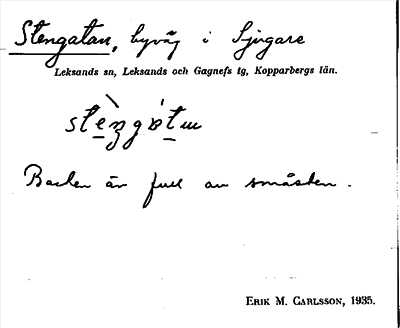 Stengatan, byväg i Sjugare
Leksands sn, Leksands och Gagnefs tg, Kopparbergs län.
Backen är full av småsten.
Erik M. Carlsson, 1935.